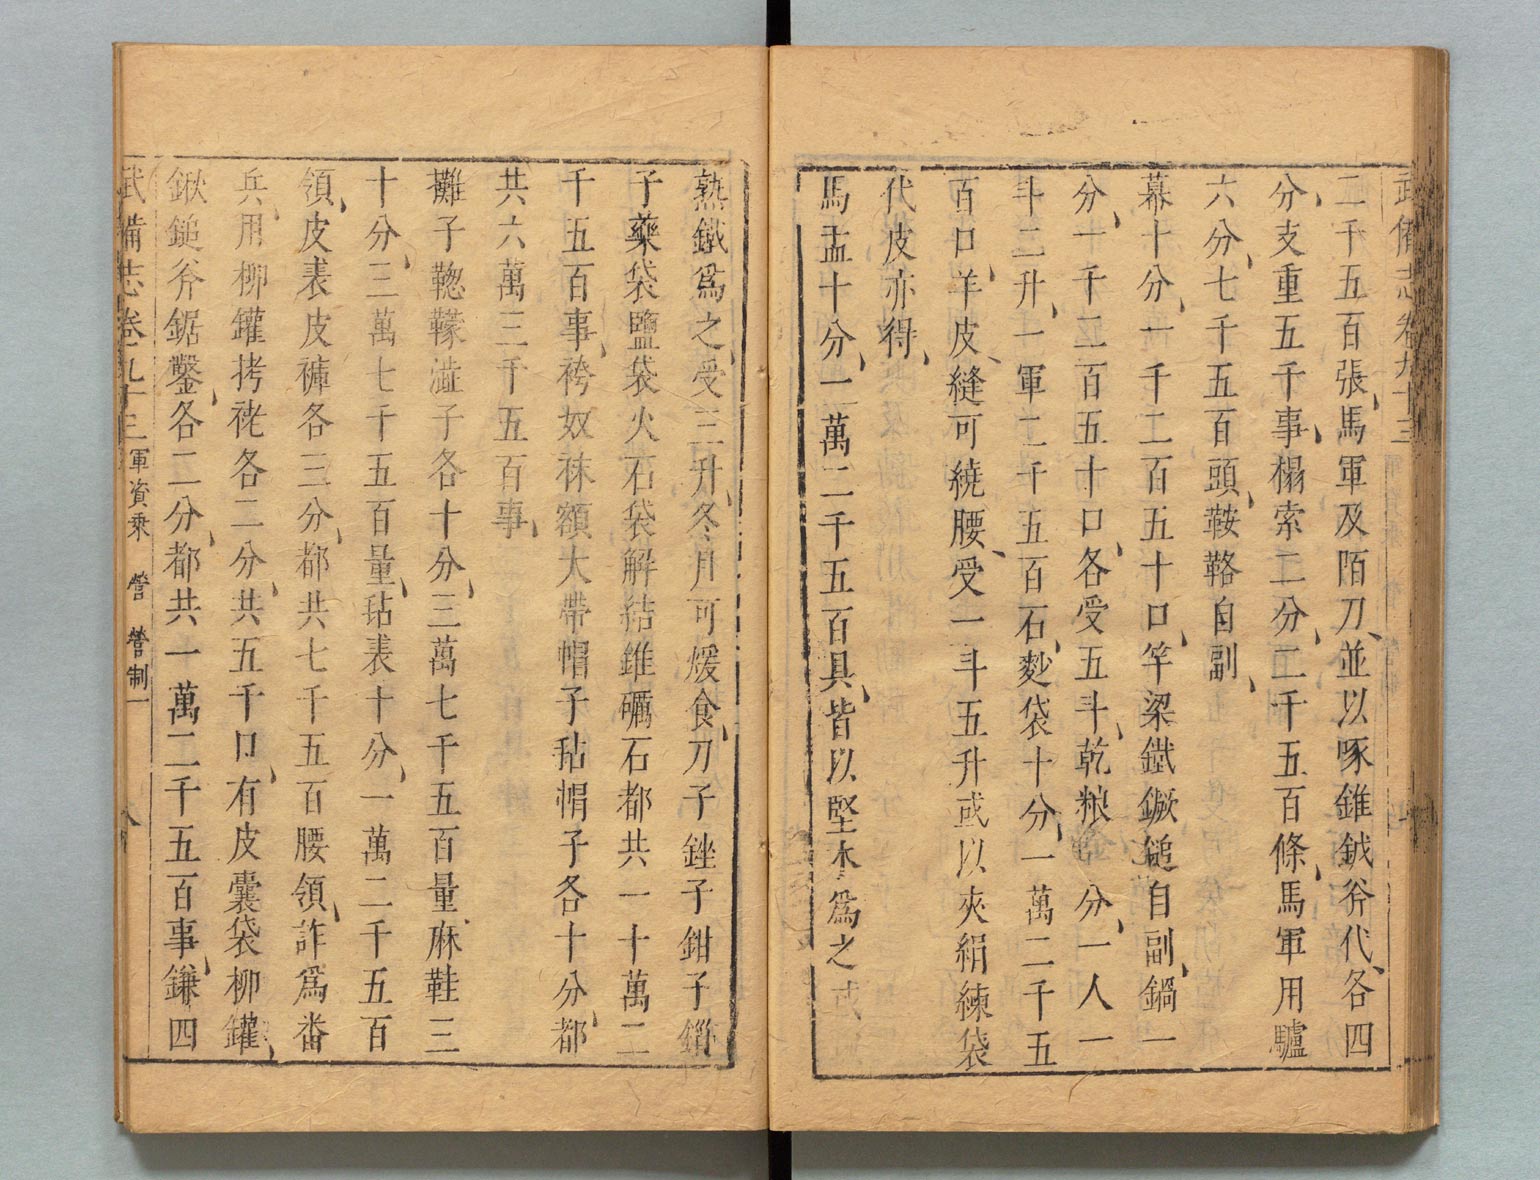 武備志卷九十三
二千五百張馬軍及陌刀並以啄錐鉞斧代各四
分支重五千事榻索二分二千五百條馬軍用驢
六分七千五百頭鞍鞈自副
幕十分一千二百五十口竿梁鐵鐝鎚自副鍋一
分一千二百五十口各受五斗乾粮十分一人一
斗二升一軍二千五百石麨袋十分一萬二千五
百口羊皮縫可繞腰受一斗五升或以夾絹練袋
代皮亦得
馬盂十分一萬二千五百具皆以堅木爲之或
熟鐵爲之受三升冬月可煖食刀子銼子鉗子錐
子藥袋鹽袋火石袋解結錐礪石都共一十萬二
千五百事袴奴袜額大帶帽子㲈帽子各十分都
共六萬三千五百事
攤子鞔䩦澁子各十分三萬七千五百量麻鞋三
十分三萬七千五百量㲈裘十分一萬二千五百
領皮裘皮褲各三分都共七千五百腰領詐爲畨
兵用柳罐栲栳各二分共五千口有皮囊袋柳罐
鍬鎚斧鋸鑿各二分都共一萬二千五百事鎌四
武備志卷九十三 軍資乘 營 營制一 八